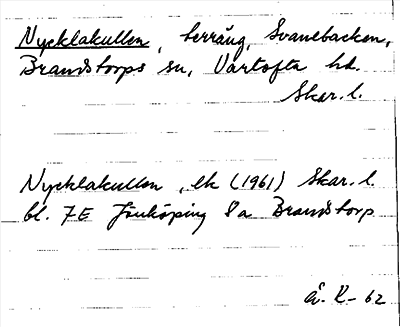 Nycklakullen, terräng, Svanebacken,
Brandstorps sn, Vartofta hd.
Skar. l.
Nycklakullen, ek (1961) Skar. l.
bl. 7E Jönköping 8a Brandstorp
62